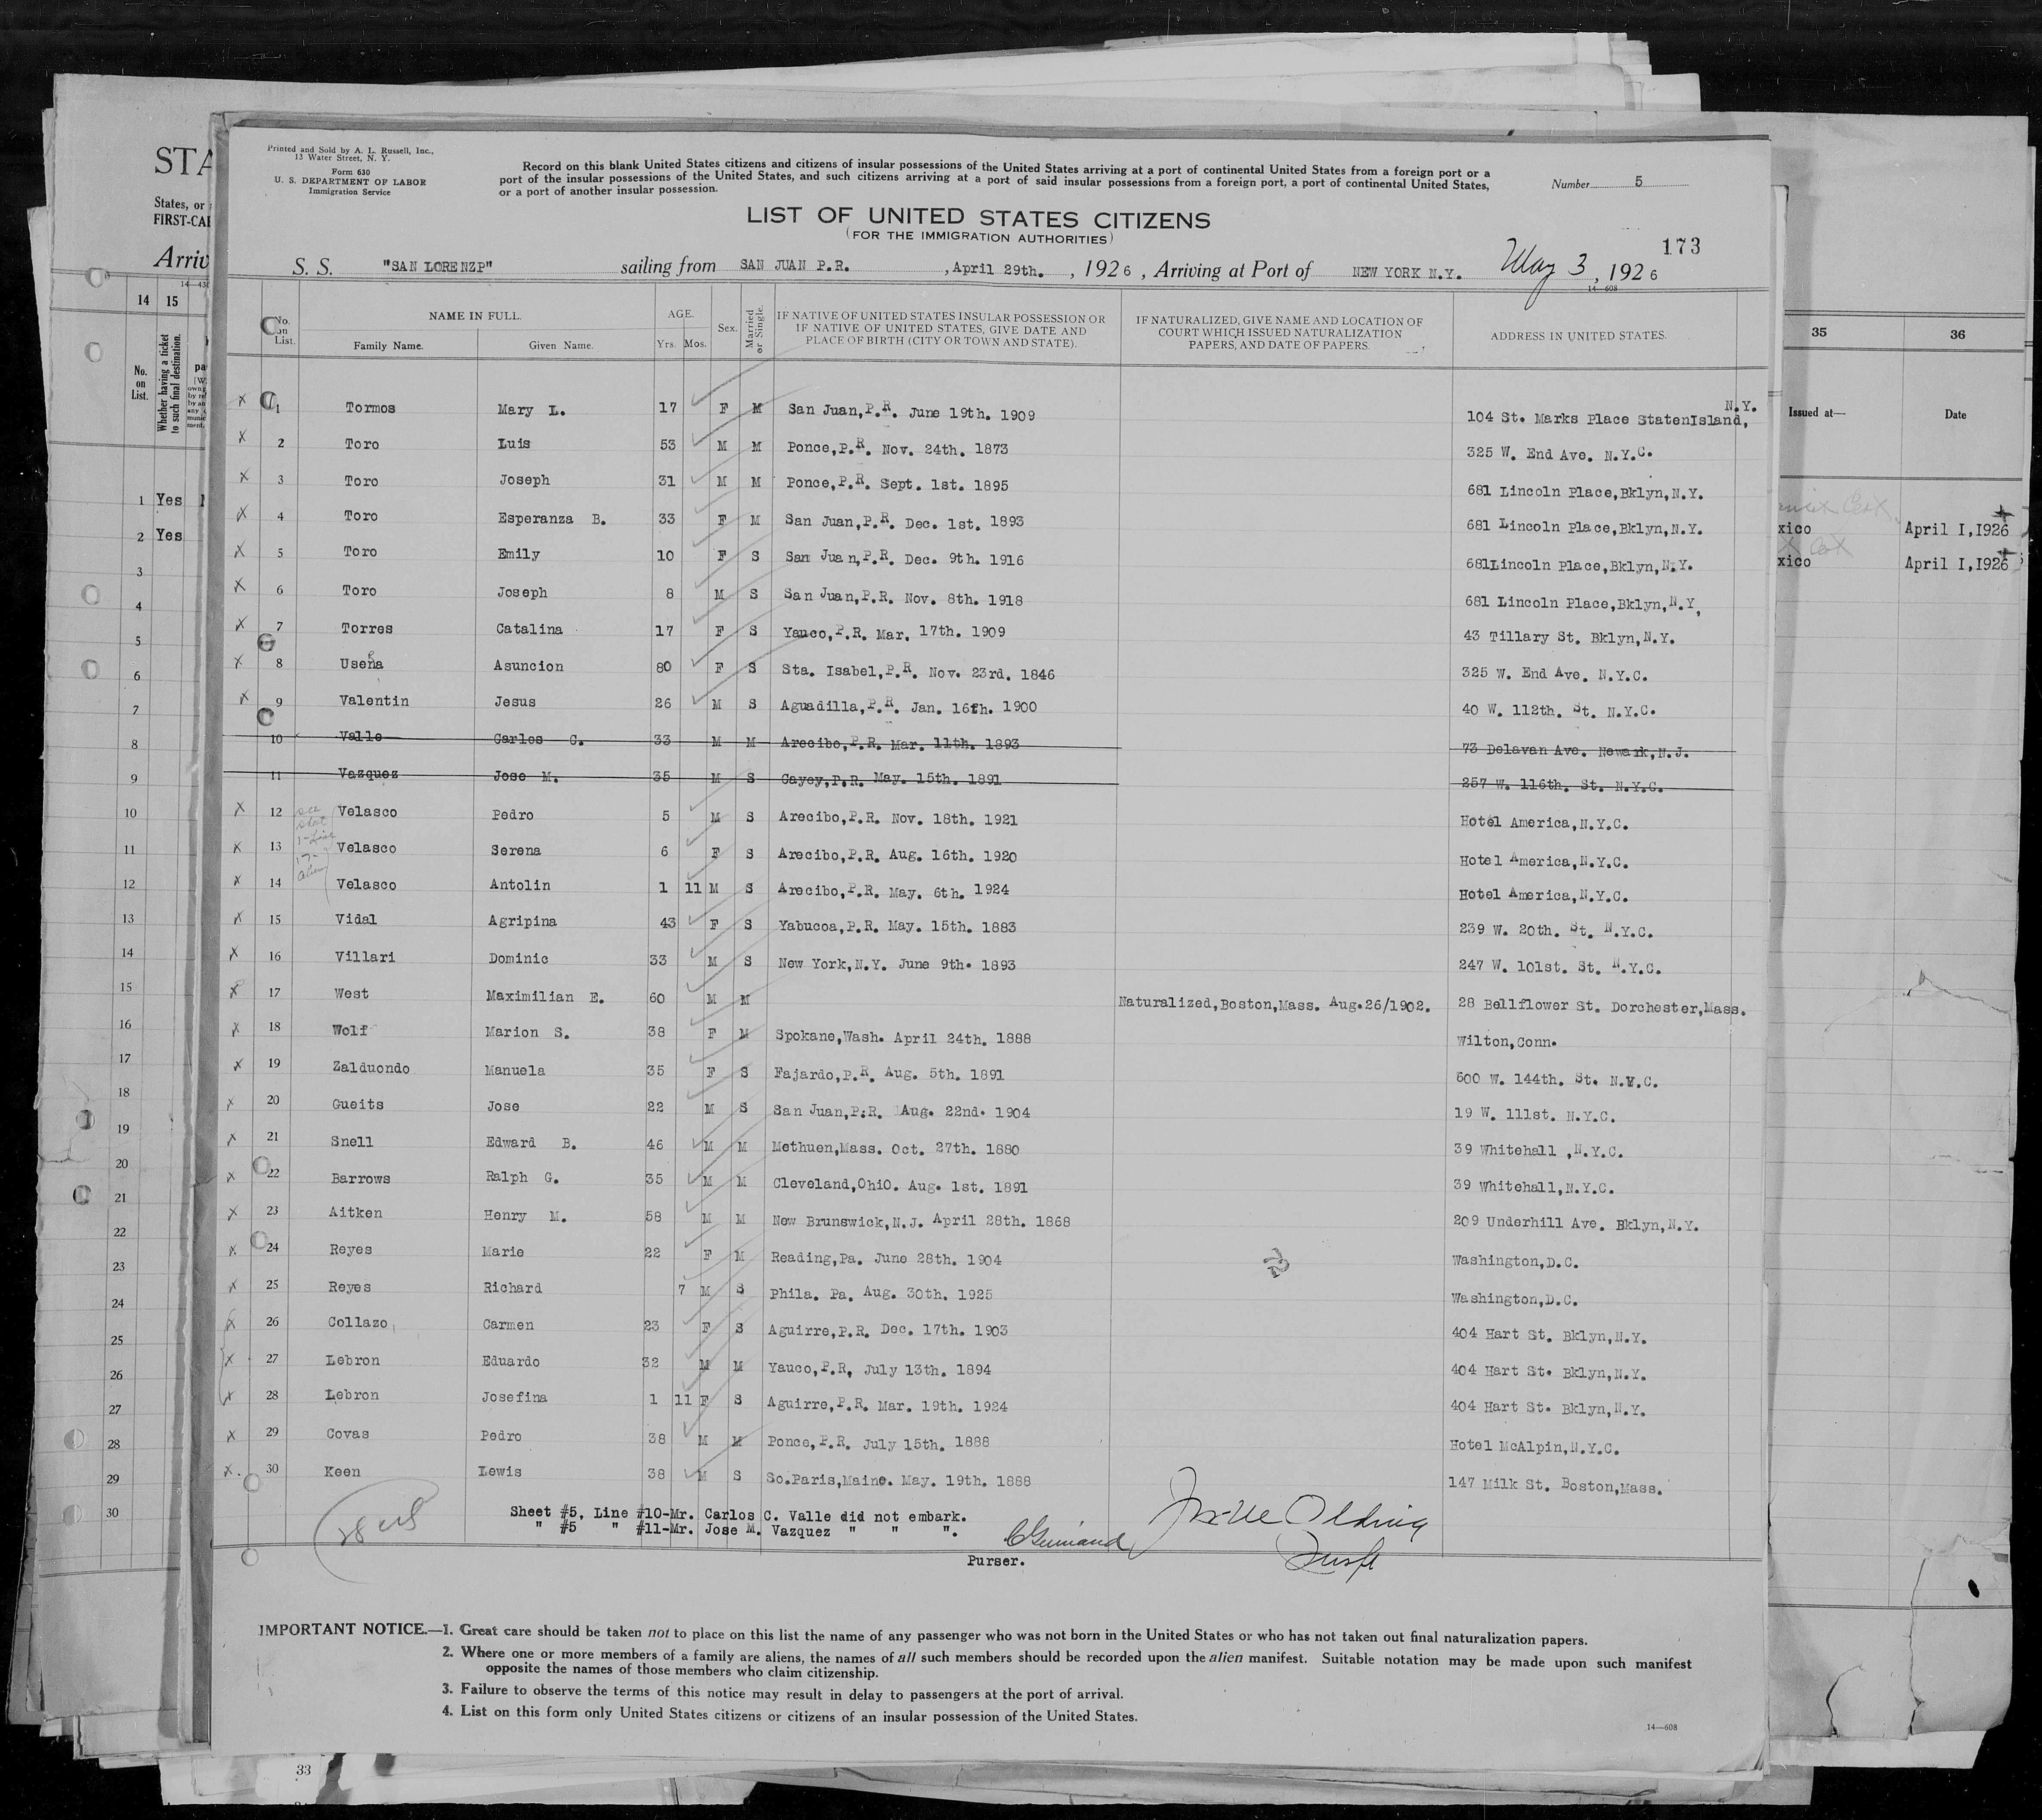 Printed and Sold by A. L. Russell, Inc.,
13 Water Street, N. Y.
Form 630
U. S. DEPARTMENT OF LABOR
Immigration Service
Record on this blank United States citizens and citizens of insular possessions of the United States arriving at a port of continental United States from a foreign port or a
port of the insular possessions of the United States, and such citizens arriving at a port of said insular possessions from a foreign port, a port of continental United States,
or a port of another insular possession.
Number 5
LIST OF UNITED STATES CITIZENS
(FOR THE IMMIGRATION AUTHORITIES)
173
S. S. "SAN LORENZP" sailing from SAN JUAN P.R. , April 29th. , 1926 , Arriving at Port of NEW YORK N.Y. May 3 , 1926
14—608
No. on List. NAME IN FULL. Family Name. Given Name. AGE. Yrs. Mos. Sex. Married or Single. IF NATIVE OF UNITED STATES INSULAR POSSESSION OR IF NATIVE OF UNITED STATES, GIVE DATE AND PLACE OF BIRTH (CITY OR TOWN AND STATE). IF NATURALIZED, GIVE NAME AND LOCATION OF COURT WHICH ISSUED NATURALIZATION PAPERS, AND DATE OF PAPERS. ADDRESS IN UNITED STATES.
x 1 Tormos Mary L. 17 F M San Juan,P.R. June 19th. 1909 104 St. Marks Place StatenIsland, N.Y.
x 2 Toro Luis 53 M M Ponce,P.R. Nov. 24th. 1873 325 W. End Ave. N.Y.C.
x 3 Toro Joseph 31 M M Ponce,P.R. Sept. 1st. 1895 681 Lincoln Place,Bklyn,N.Y.
x 4 Toro Esperanza B. 33 F M San Juan,P.R. Dec. 1st. 1893 681 Lincoln Place,Bklyn,N.Y.
x 5 Toro Emily 10 F S San Juan,P.R. Dec. 9th. 1916 681Lincoln Place,Bklyn,N.Y.
x 6 Toro Joseph 8 M S San Juan,P.R. Nov. 8th. 1918 681 Lincoln Place,Bklyn,N.Y,
x 7 Torres Catalina 17 F S Yauco,P.R. Mar. 17th. 1909 43 Tillary St. Bklyn,N.Y.
x 8 Usera Asuncion 80 F S Sta. Isabel,P.R. Nov. 23rd. 1846 325 W. End Ave. N.Y.C.
x 9 Valentin Jesus 26 M S Aguadilla,P.R. Jan. 16th. 1900 40 W. 112th. St. N.Y.C.
10 Valle Carlos C. 33 M M Arecibo,P.R. Mar. 11th. 1893 73 Delavan Ave. Newark,N.J.
11 Vazquez Jose M. 35 M S Cayey,P.R. May. 15th. 1891 257 W. 116th. St. N.Y.C.
x 12 Velasco Pedro 5 M S Arecibo,P.R. Nov. 18th. 1921 Hotel America,N.Y.C.
see sheet 1-Line 17- alien
x 13 Velasco Serena 6 F S Arecibo,P.R. Aug. 16th. 1920 Hotel America,N.Y.C.
x 14 Velasco Antolin 1 11 M S Arecibo,P.R. May. 6th. 1924 Hotel America,N.Y.C.
x 15 Vidal Agripina 43 F S Yabucoa,P.R. May. 15th. 1883 239 W. 20th. St. N.Y.C.
x 16 Villari Dominic 33 M S New York,N.Y. June 9th. 1893 247 W. 101st. St. N.Y.C.
x 17 West Maximilian E. 60 M M Naturalized,Boston,Mass. Aug.26/1902. 28 Bellflower St. Dorchester,Mass.
x 18 Wolf Marion S. 38 F M Spokane,Wash. April 24th. 1888 Wilton,Conn.
x 19 Zalduondo Manuela 35 F S Fajardo,P.R. Aug. 5th. 1891 600 W. 144th. St. N.Y.C.
x 20 Gueits Jose 22 M S San Juan,P.R. Aug. 22nd. 1904 19 W. 111st. N.Y.C.
x 21 Snell Edward B. 46 M M Methuen,Mass. Oct. 27th. 1880 39 Whitehall ,N.Y.C.
x 22 Barrows Ralph G. 35 M M Cleveland,OhiO. Aug. 1st. 1891 39 Whitehall,N.Y.C.
x 23 Aitken Henry M. 58 M M New Brunswick,N.J. April 28th. 1868 209 Underhill Ave. Bklyn,N.Y.
x 24 Reyes Marie 22 F M Reading,Pa. June 28th. 1904 Washington,D.C.
x 25 Reyes Richard 7 M S Phila. Pa. Aug. 30th. 1925 Washington,D.C.
x 26 Collazo Carmen 23 F S Aguirre,P.R. Dec. 17th. 1903 404 Hart St. Bklyn,N.Y.
x 27 Lebron Eduardo 32 M M Yauco,P.R, July 13th. 1894 404 Hart St. Bklyn,N.Y.
x 28 Lebron Josefina 1 11 F S Aguirre,P.R. Mar. 19th. 1924 404 Hart St. Bklyn,N.Y.
x 29 Covas Pedro 38 M M Ponce,P.R. July 15th. 1888 Hotel McAlpin,N.Y.C.
x. 30 Keen Lewis 38 M S So.Paris,Maine. May. 19th. 1888 147 Milk St. Boston,Mass.
Sheet #5, Line #10-Mr. Carlos C. Valle did not embark.
" #5 " #11-Mr. Jose M. Vazquez " " ".
Purser.
IMPORTANT NOTICE.—1. Great care should be taken not to place on this list the name of any passenger who was not born in the United States or who has not taken out final naturalization papers.
2. Where one or more members of a family are aliens, the names of all such members should be recorded upon the alien manifest. Suitable notation may be made upon such manifest
opposite the names of those members who claim citizenship.
3. Failure to observe the terms of this notice may result in delay to passengers at the port of arrival.
4. List on this form only United States citizens or citizens of an insular possession of the United States.
14—608
STA
States, or
FIRST-CA
Arriv
14 15
No. on List.
Whether having a ticket to such final destination.
1 Yes
2 Yes
3
4
5
6
7
8
9
10
11
12
13
14
15
16
17
18
19
20
21
22
23
24
25
26
27
28
29
30
33
35 36
Issued at— Date
xico April I,1926
xico April I,1926